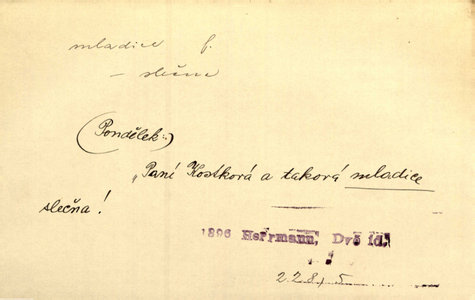 mladice f.
– slečna
(Pondělek:)
„Paní Kostková a taková mladice
slečna!
1896 Herrmann, Dvě id.
228